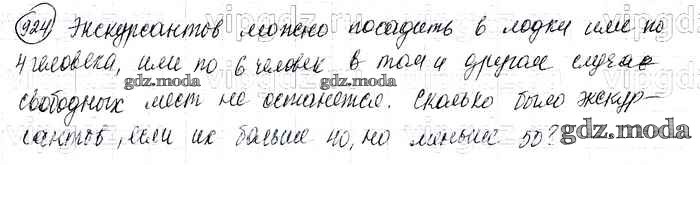 924 Экскурсантов можно посадить в лодки или по
4 человека, или по 6 человек в том и другом случае
свободных мест не останется. Сколько было экскур-
сантов, если их больше 40, но меньше 50?
gdz.moda
gdz.moda
gdz.moda
gdz.moda